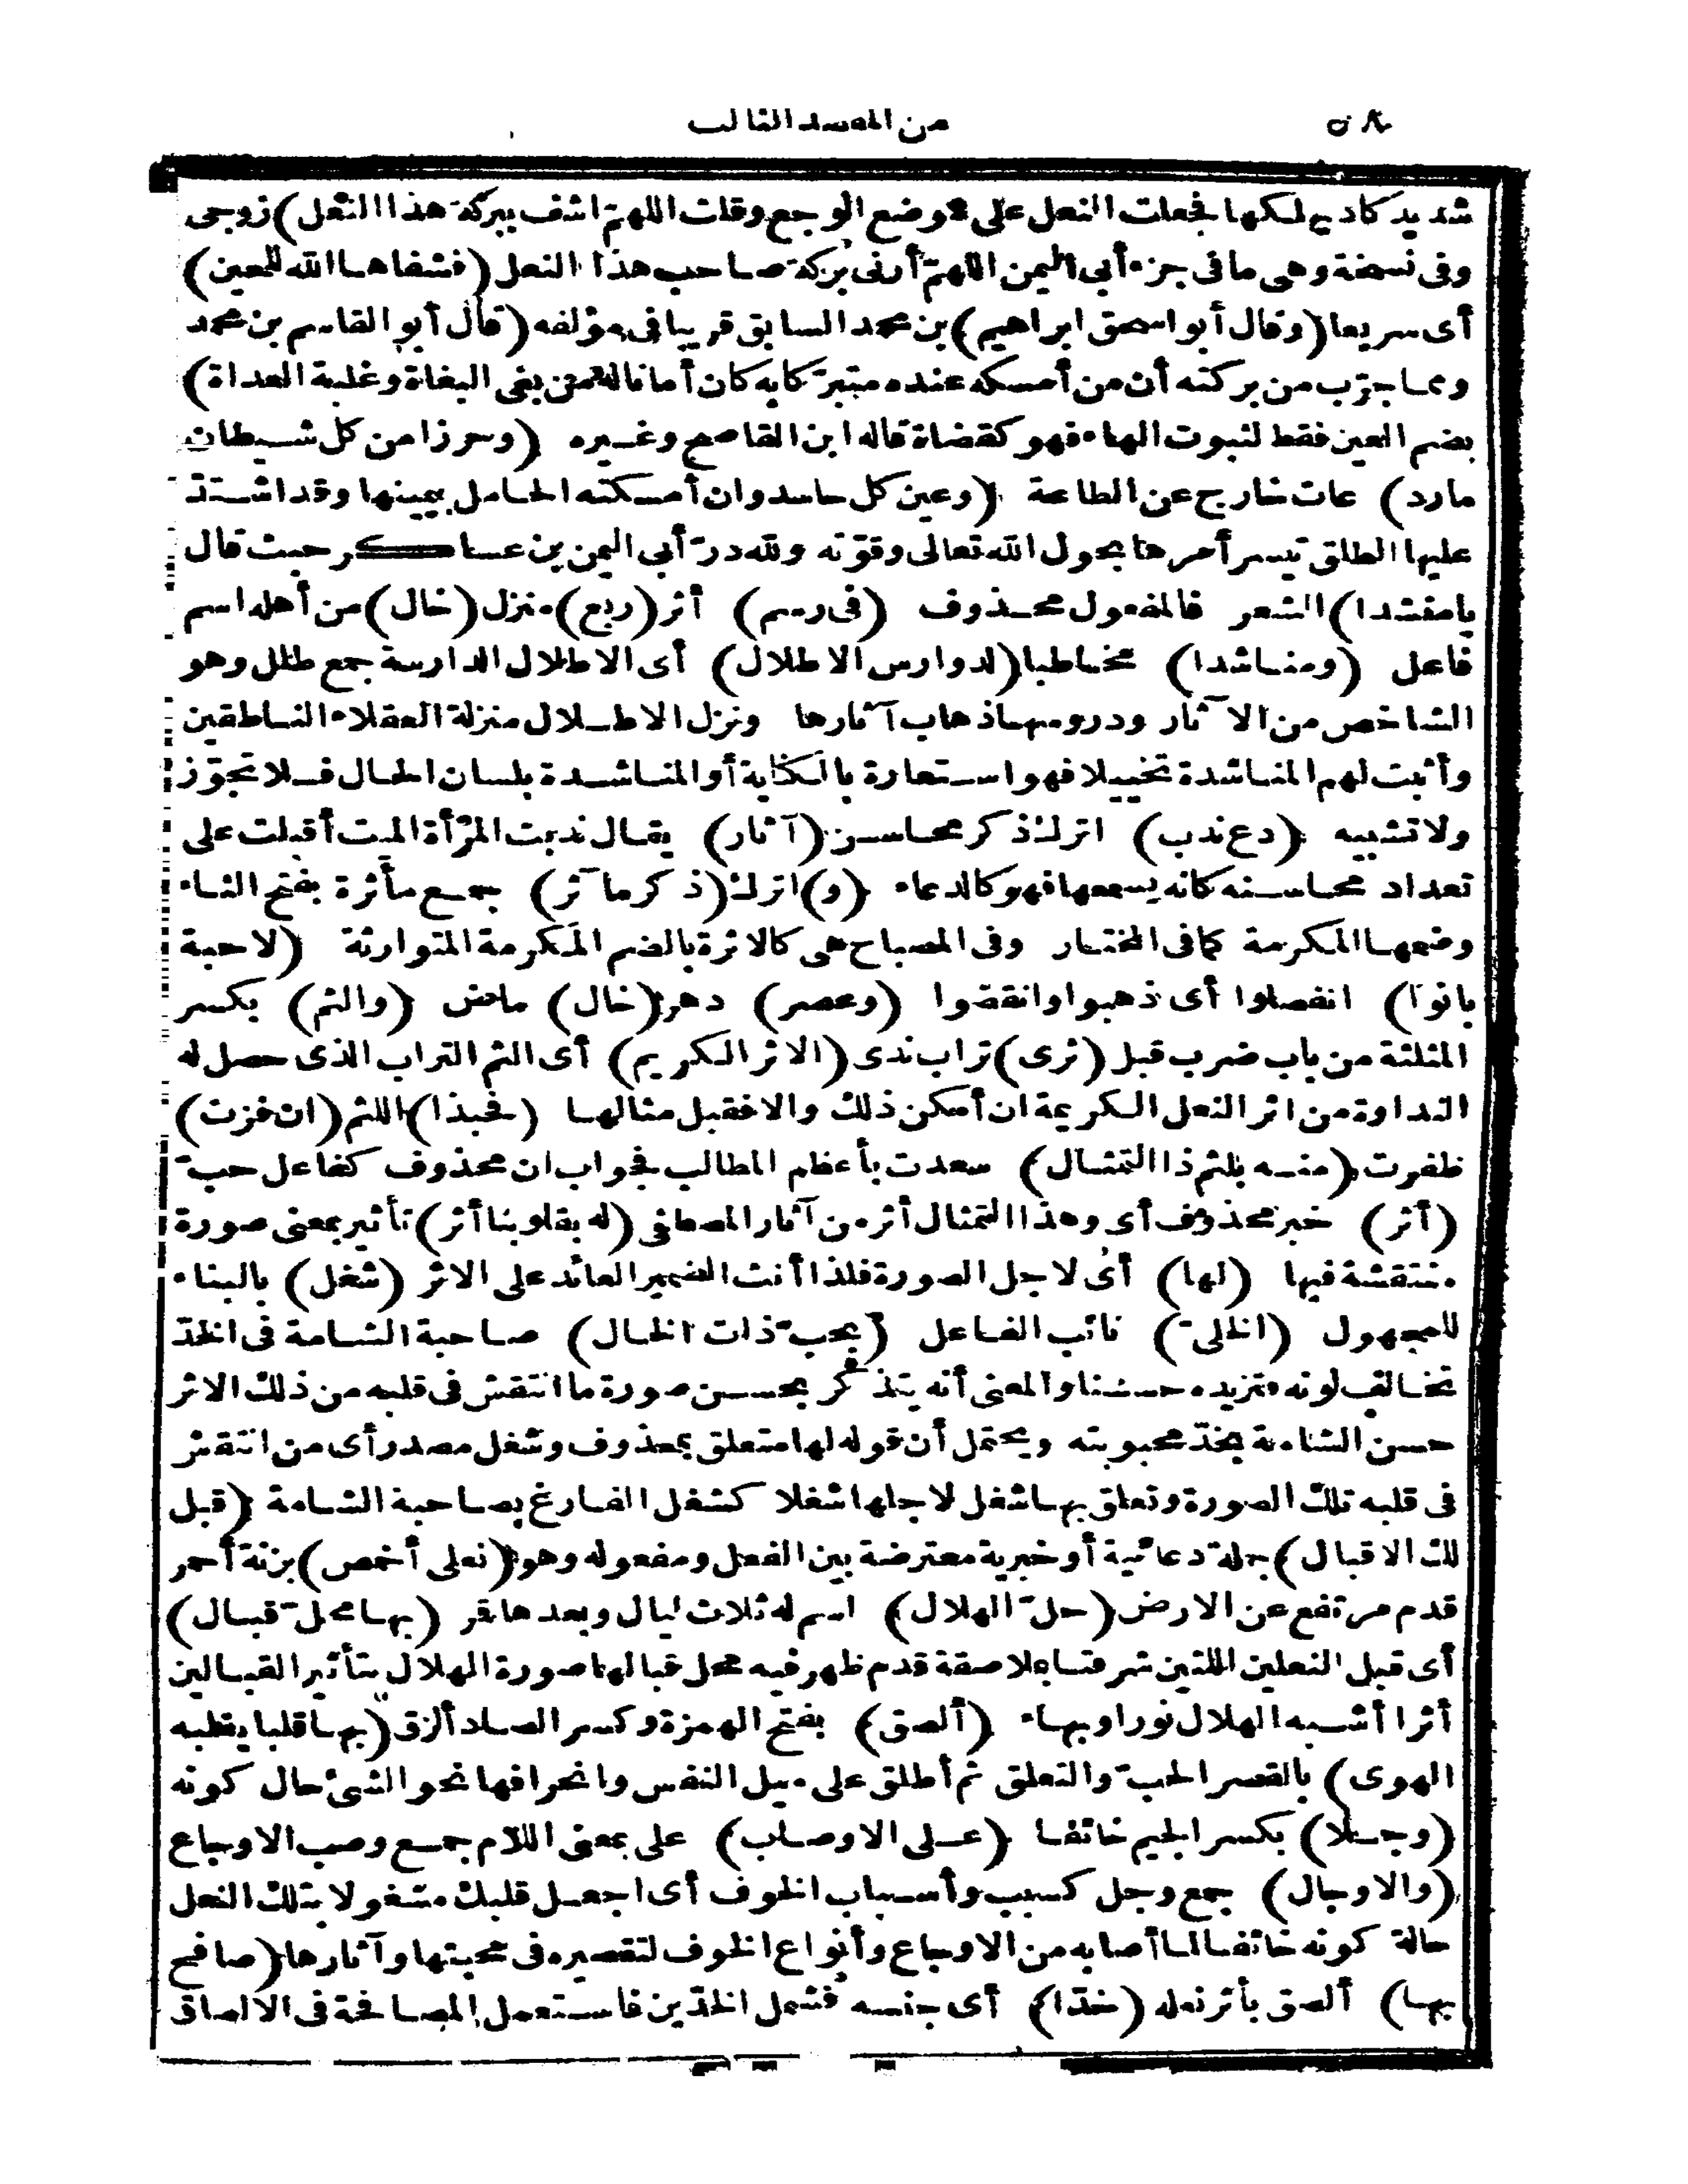 ٥٨ من المقصد الثالث
شديد كاد يهلكها فجعلت النعل على موضع الوجع وقلت اللهم اشف ببركة هذا النعل) زوجى
وفى نسخة وهى ما فى جزء أبى اليمن اللهم أرنى بركة صاحب هذا النعل (فشفاها الله للحين)
أى سريعا (وقال أبو اسحق ابراهيم) بن محمد السابق قريبا فى مؤلفه (قال أبو القاسم بن محمد
ومما جرّب من بركته أن من أمسكه عنده متبرّكا به كان أمانا له من بغى البغاة وغلبة العداة)
بضم العين فقط لثبوت الهاء فهو كقضاة قاله ابن القاصح وغيره (وحرزا من كل شيطان
مارد) عات خارج عن الطاعة (وعين كل حاسد وان أمسكته الحامل بيمينها وقد اشتدّ
عليها الطلق تيسر أمرها بحول الله تعالى وقوّته ولله درّ أبى اليمن بن عساكر حيث قال
يا منشدا) الشعر فالمفعول محذوف (فى رسم) أثر (ربع) منزل (خال) من أهله اسم
فاعل (ومناشدا) مخاطبا (لدوارس الاطلال) أى الاطلال الدارسة جمع طلل وهو
الشاخص من الآثار ودروسها ذهاب آثارها ونزل الاطلال منزلة العقلاء الناطقين
وأثبت لهم المناشدة تخييلا فهو استعارة بالكناية أو المناشدة بلسان الحال فلا تجوّز
ولا تشبيه (دع ندب) اترك ذكر محاسن (آثار) يقال ندبت المرأة الميت أقبلت على
تعداد محاسنه كانه يسمعها فهو كالدعاء (و) اترك (ذكر مآثر) جمع مأثرة بفتح الثاء
وضمها المكرمة كما فى المختار وفى المصباح هى كالاثرة بالضم المكرمة المتوارثة (لاحبة
بانوا) انفصلوا أى ذهبوا وانقضوا (وعصر) دهر (خال) ماض (والثم) بكسر
المثلثة من باب ضرب قبل (ثرى) تراب ندى (الاثر الكريم) أى الثم التراب الذى حصل له
النداوة من اثر النعل الكريمة ان أمكن ذلك والا فقبل مثالها (فحبذا) اللثم (ان فزت)
ظفرت (منه بلثم ذا التمثال) سعدت بأعظم المطالب فجواب ان محذوف كفاعل حبّ
(أثر) خبر محذوف أى وهذا التمثال أثر من آثار المصطفى (له بقلوبنا أثر) تأثير بمعنى صورة
منتقشة فيها (لها) أى لاجل الصورة فلذا أنث الضمير العائد على الاثر (شغل) بالبناء
للمجهول (الخلىّ) نائب الفاعل (بحبّ ذات الخال) صاحبة الشامة فى الخدّ
تخالف لونه وتزيده حسنا والمعنى أنه يتذكر بحسن صورة ما انتقش فى قلبه من ذلك الاثر
حسن الشامة بخدّ محبوبته ويحتمل أن قوله لها متعلق بمحذوف وشغل مصدر أى من انتقش
فى قلبه تلك الصورة وتعلق بها شغل لاجلها شغلا كشغل الفارغ بصاحبة الشامة (قبل
لك الاقبال) جملة دعائية أو خبرية معترضة بين الفعل ومفعوله وهو (نعلى أخمص) بزنة أحمر
قدم مرتفع عن الارض (حلّ الهلال) اسم له ثلاث ليال وبعدها قر (بها محلّ قبال)
أى قبل النعلين اللتين شرفتا بملاصقة قدم ظهر فيه محل قبالها صورة الهلال بتأثير القبالين
أثرا أشبه الهلال نورا وبهاء (ألصق) بفتح الهمزة وكسر الصاد ألزق (بها قلبا يقلبه
الهوى) بالقصر الحبّ والتعلق ثم أطلق على ميل النفس وانحرافها نحو الشئ حال كونه
(وجلا) بكسر الجيم خائفا (على الاوصاب) على بمعنى اللام جمع وصب الاوجاع
(والاوجال) جمع وجل كسبب وأسباب الخوف أى اجعل قلبك مشغولا بتلك النعل
حالة كونه خائفا لما أصابه من الاوجاع وأنواع الخوف لتقصيره فى محبتها وآثارها (صافح
بها) ألصق بأثر نعله (خدّا) أى جنسه فشمل الخدّين فاستعمل المصافحة فى الالصاق